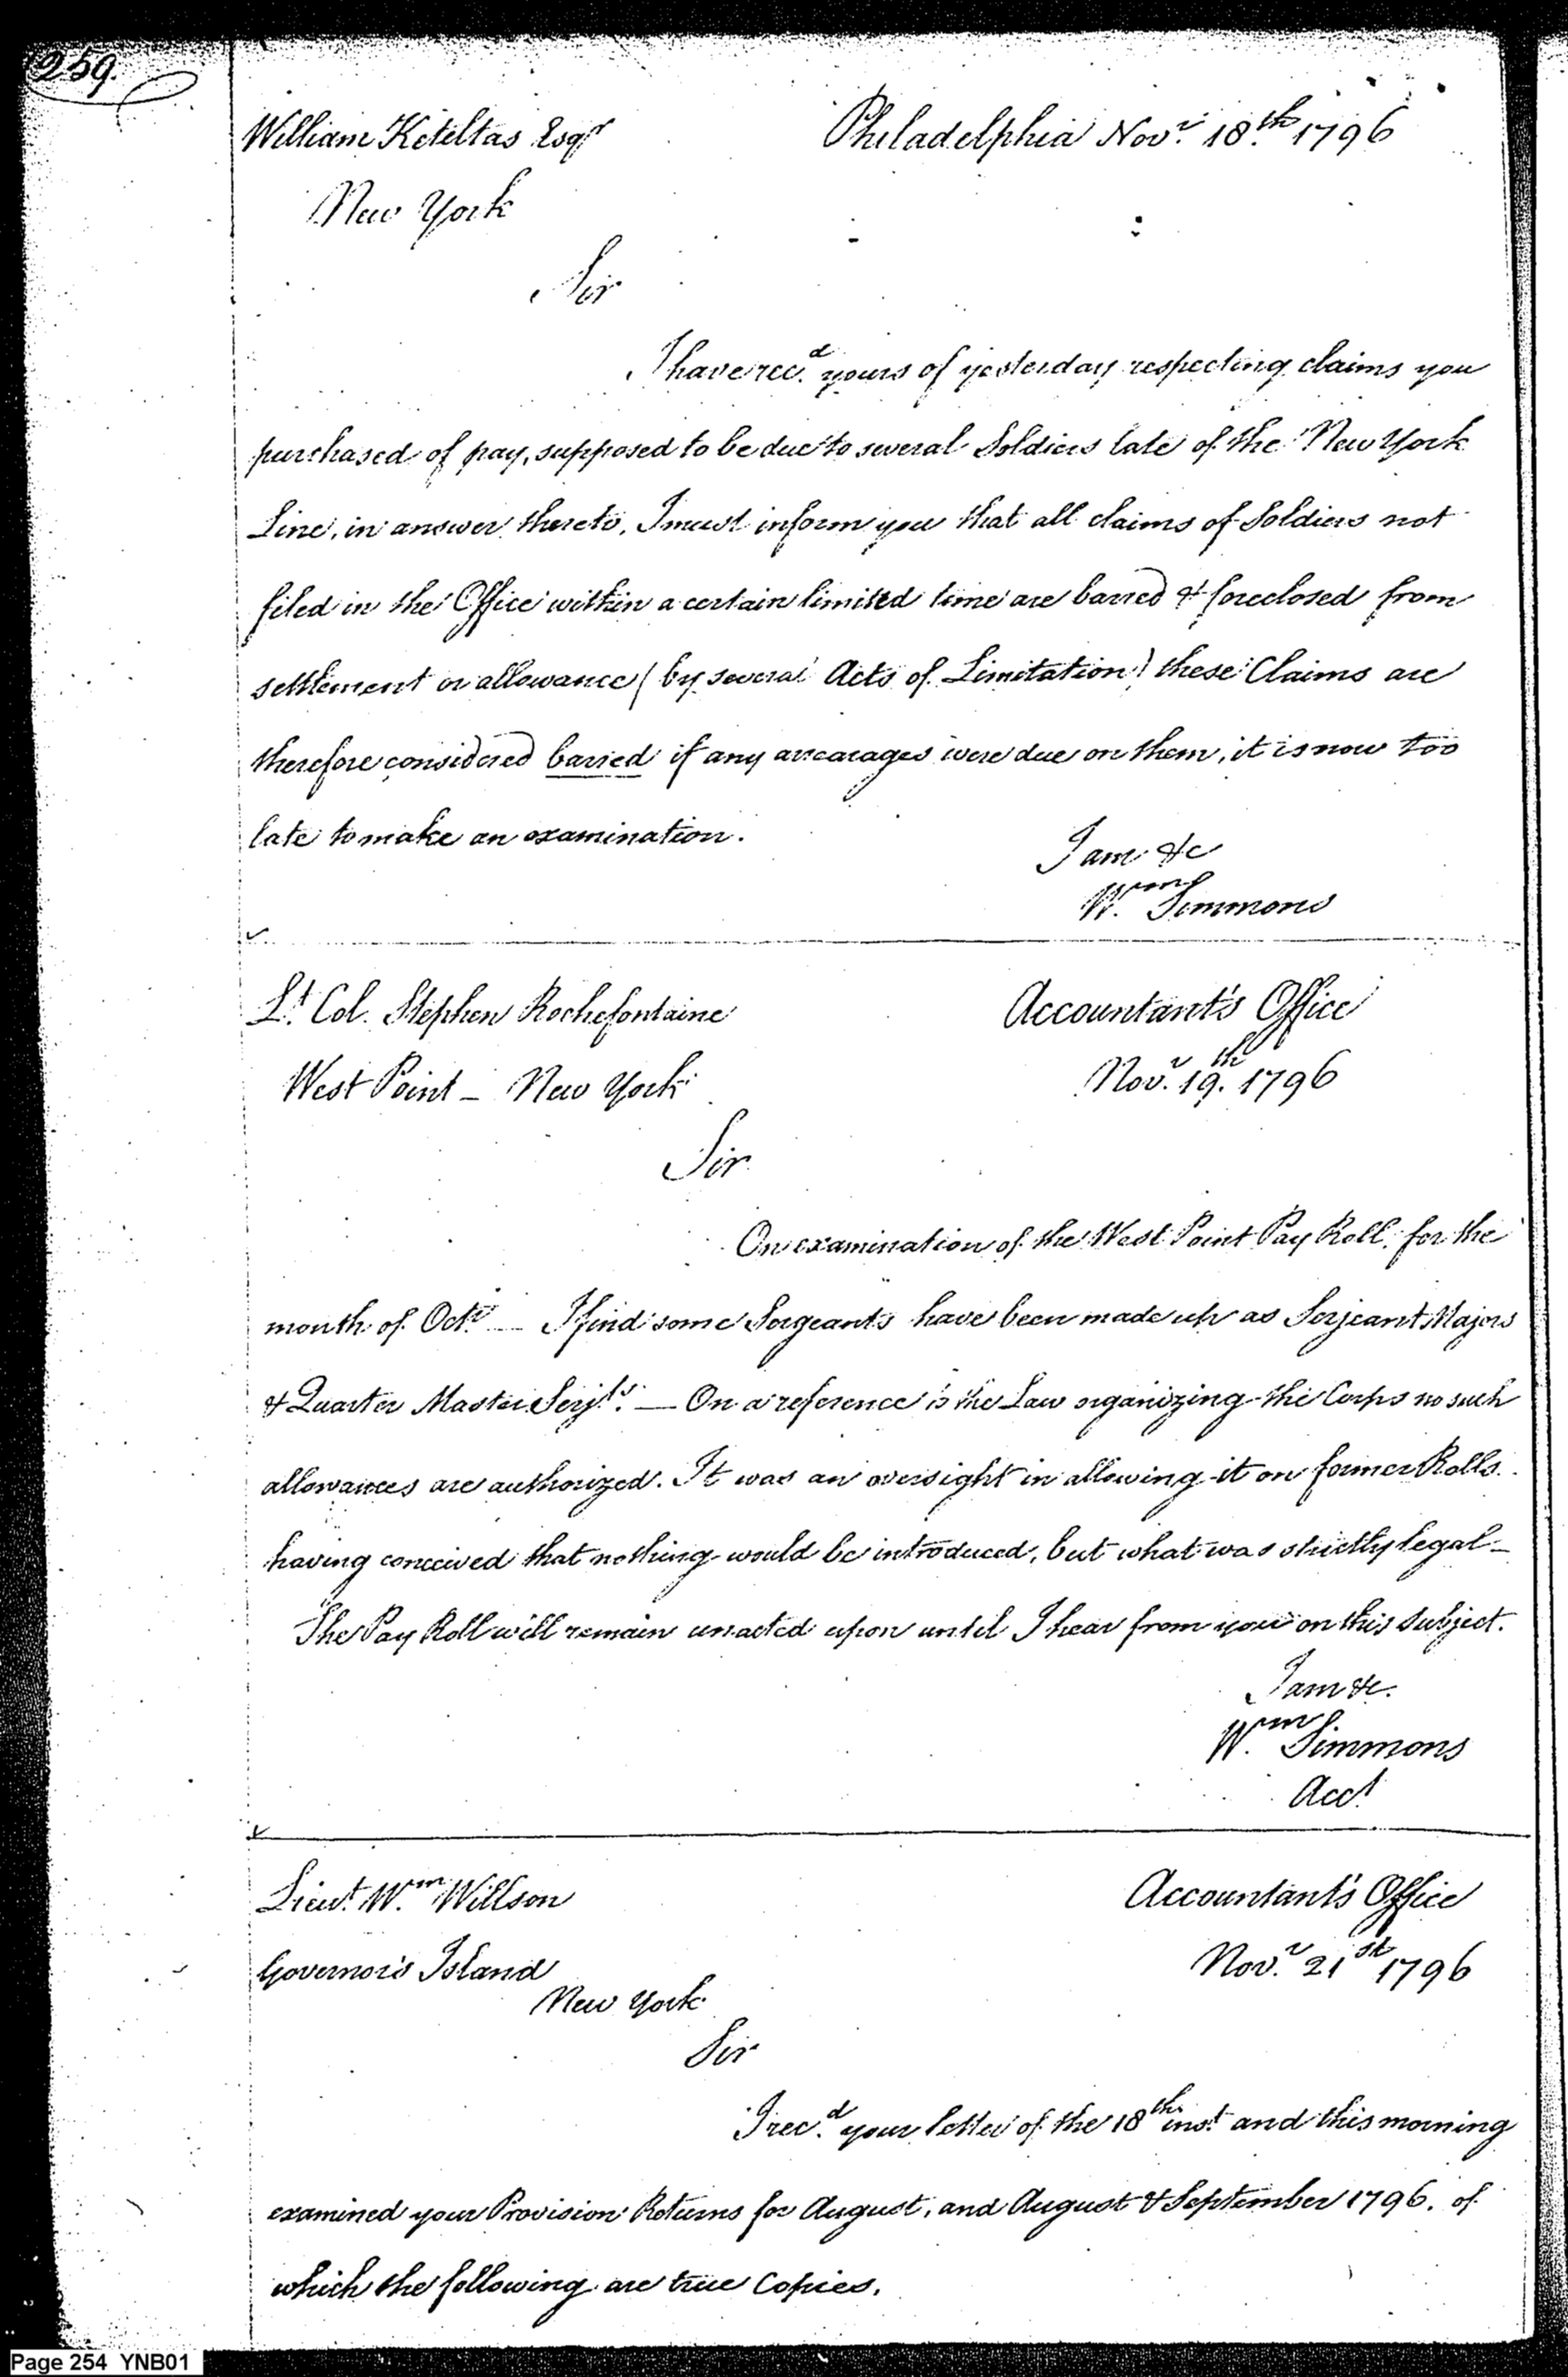 259.
William Keteltas Esqr Philadelphia Novr. 18th. 1796
New York
Sir
I have recd. yours of yesterday respecting claims you
purchased of pay, supposed to be due to several Soldiers late of the New York
Line, in answer thereto, I must inform you that all claims of Soldiers not
filed in the Office within a certain limited time are barred & foreclosed from
settlement or allowance (by several Acts of Limitation) these Claims are
therefore considered barred if any arrearages were due on them, it is now too
late to make an examination.
I am &c
Wm. Simmons
Lt. Col. Stephen Rochefontaine Accountant's Office
West Point – New York Novr. 19th. 1796
Sir
On examination of the West Point Pay Roll, for the
month of Octr. — I find some Sergeants have been made up as Serjeant Majors
& Quarter Master Serjts. — On a reference to the Law organizing the Corps no such
allowances are authorized. It was an oversight in allowing it on former Rolls.
having conceived that nothing would be introduced, but what was strictly legal –
The Pay Roll will remain unacted upon until I hear from you on this subject.
I am &c.
Wm. Simmons
Acct.
Lieut. Wm. Willson Accountant's Office
Governor's Island Novr. 21st 1796
New York
Sir
I recd. your letter of the 18th inst. and this morning
examined your Provision Returns for August, and August & September 1796. of
which the following are true Copies.
Page 254 YNB01